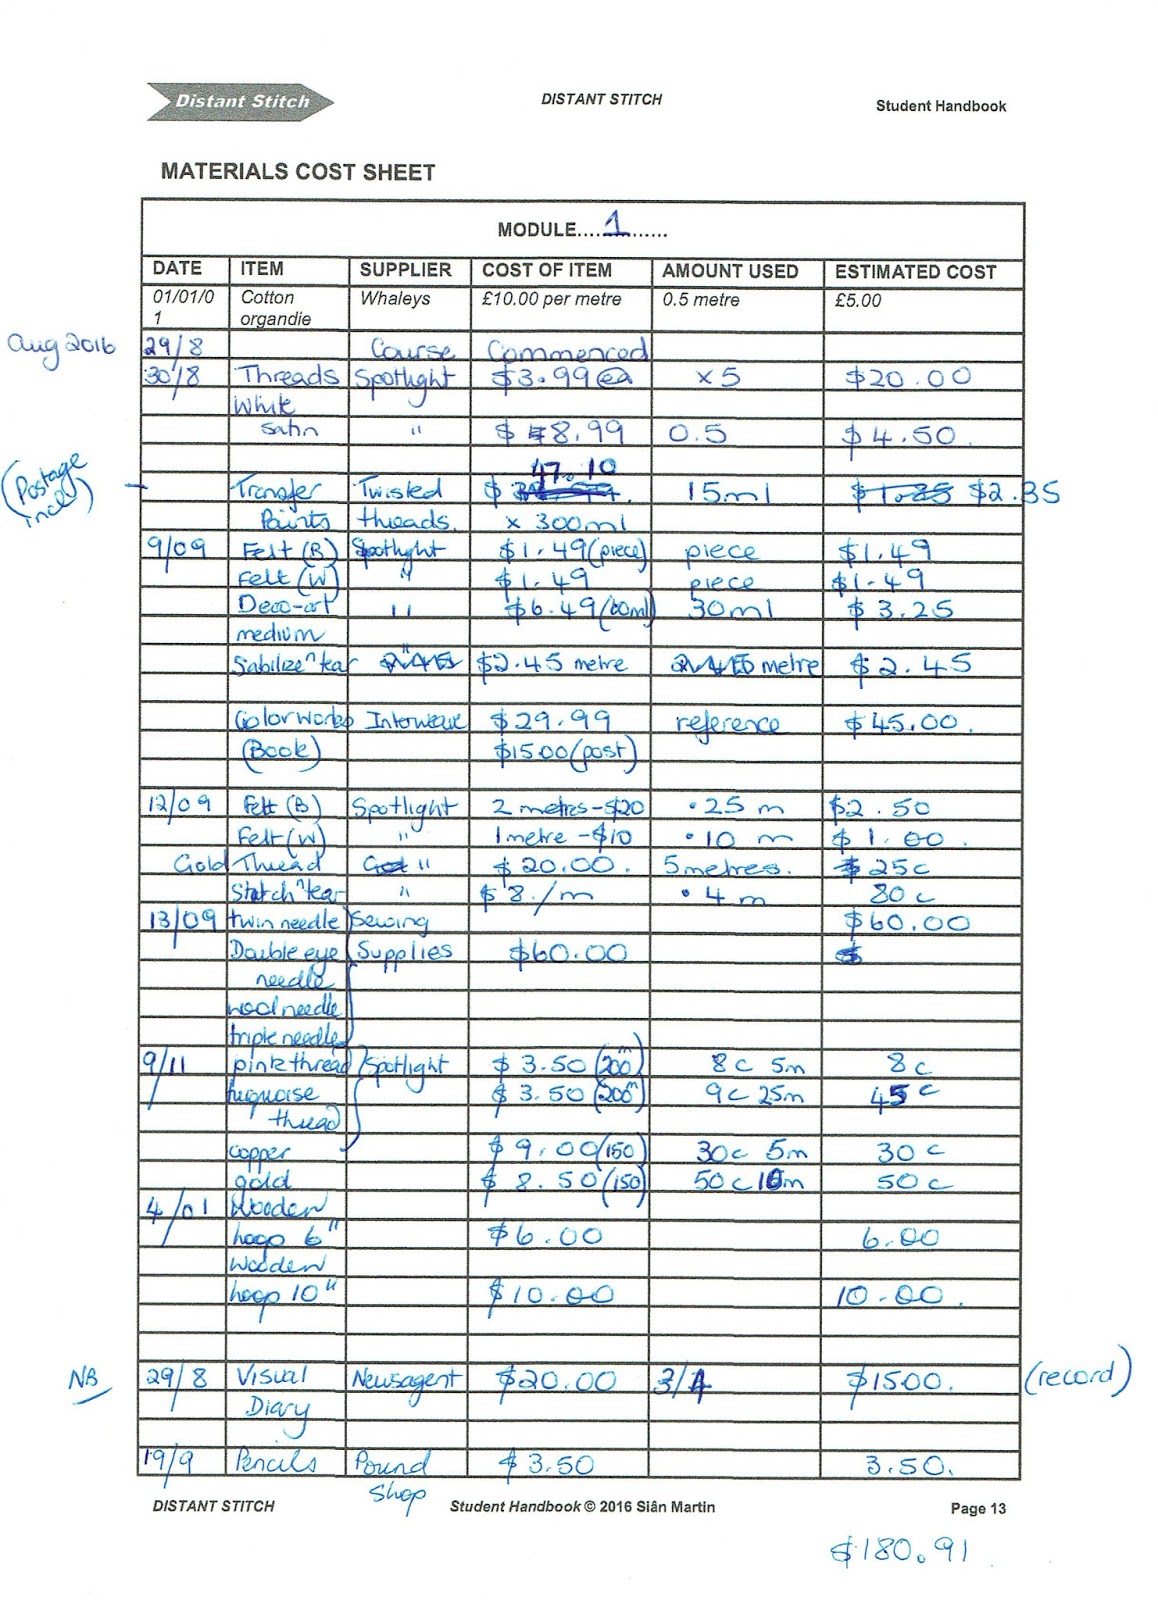 Distant Stitch
DISTANT STITCH
Student Handbook
MATERIALS COST SHEET
MODULE....1......
DATE ITEM SUPPLIER COST OF ITEM AMOUNT USED ESTIMATED COST
01/01/0 Cotton Whaleys £10.00 per metre 0.5 metre £5.00
1 organdie
Aug 2016 29/8 Course Commenced
30/8 Threads Spotlight $3.99 ea x5 $20.00
White
satin " $8.99 0.5 $4.50
47.10
(Postage incl) - Transfer Twisted $ 15ml $1.85 $2.35
Paints threads. x 300ml
9/09 Felt (B) Spotlight $1.49 (piece) piece $1.49
Felt (W) " $1.49 piece $1.49
Deco-art " $6.49 (60ml) 30ml $3.25
medium
Sabilize "tear " $2.45 metre metre $2.45
Colorworks Interweave $29.99 reference $45.00.
(Book) $1500 (post)
12/09 Felt (B) Spotlight 2 metres-$20 .25 m $2.50
Felt (W) " 1metre -$10 .10 m $1.00.
Gold Thread " $20.00. 5metres. 25c
Stitch "tear " $8./m .4m 80c
13/09 twin needle Sewing $60.00
Double eye Supplies $60.00 $
needle
wool needle
triple needle
9/11 pink thread Spotlight $3.50 (200m) 8c 5m 8c
turquoise $3.50 (200m) 9c 25m 45c
thread
copper $9.00 (150) 30c 5m 30c
gold $8.50 (150) 50c 10m 50c
4/01 Wooden
hoop 6" $6.00 6.00
Wooden
hoop 10" $10.00 10.00.
NB 29/8 Visual Newsagent $20.00 3/4 $1500. (record)
Diary
19/9 Pencils Pound $3.50 3.50.
Shop
DISTANT STITCH Student Handbook © 2016 Siân Martin Page 13
$180.91